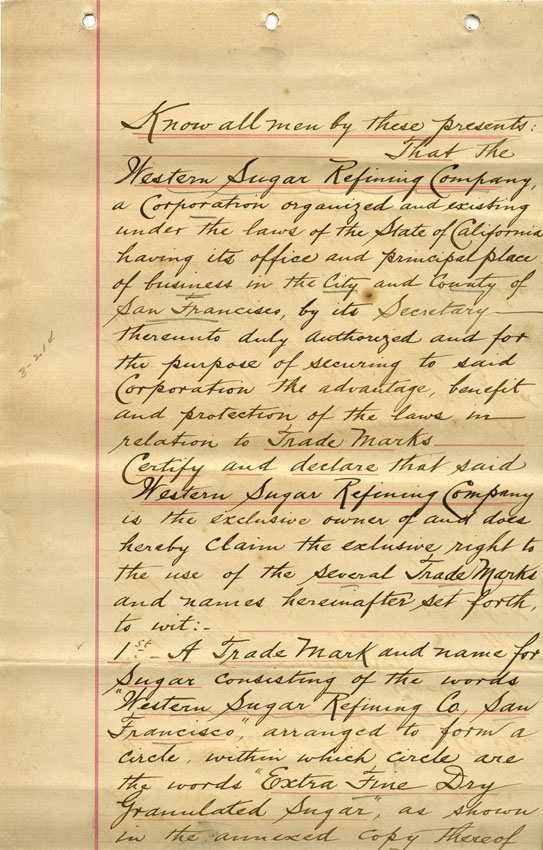 Know all men by these presents:
That the
Western Sugar Refining Company,
a Corporation organized and existing
under the laws of the State of California
having its office and principal place
of business in the City and County of
San Francisco, by its Secretary —
thereunto duly authorized and for
the purpose of securing to said
Corporation the advantage, benefit
and protection of the laws in —
relation to Trade Marks
Certify and declare that said
Western Sugar Refining Company
is the exclusive owner of and does
hereby claim the exlusive right to
the use of the several Trade Marks
and names hereinafter set forth,
to wit:-
1st - A Trade Mark and name for
Sugar consisting of the words
"Western Sugar Refining Co, San
Francisco", arranged to form a
circle, within which circle are
the words "Extra Fine Dry
Granulated Sugar", as shown
in the annexed copy thereof